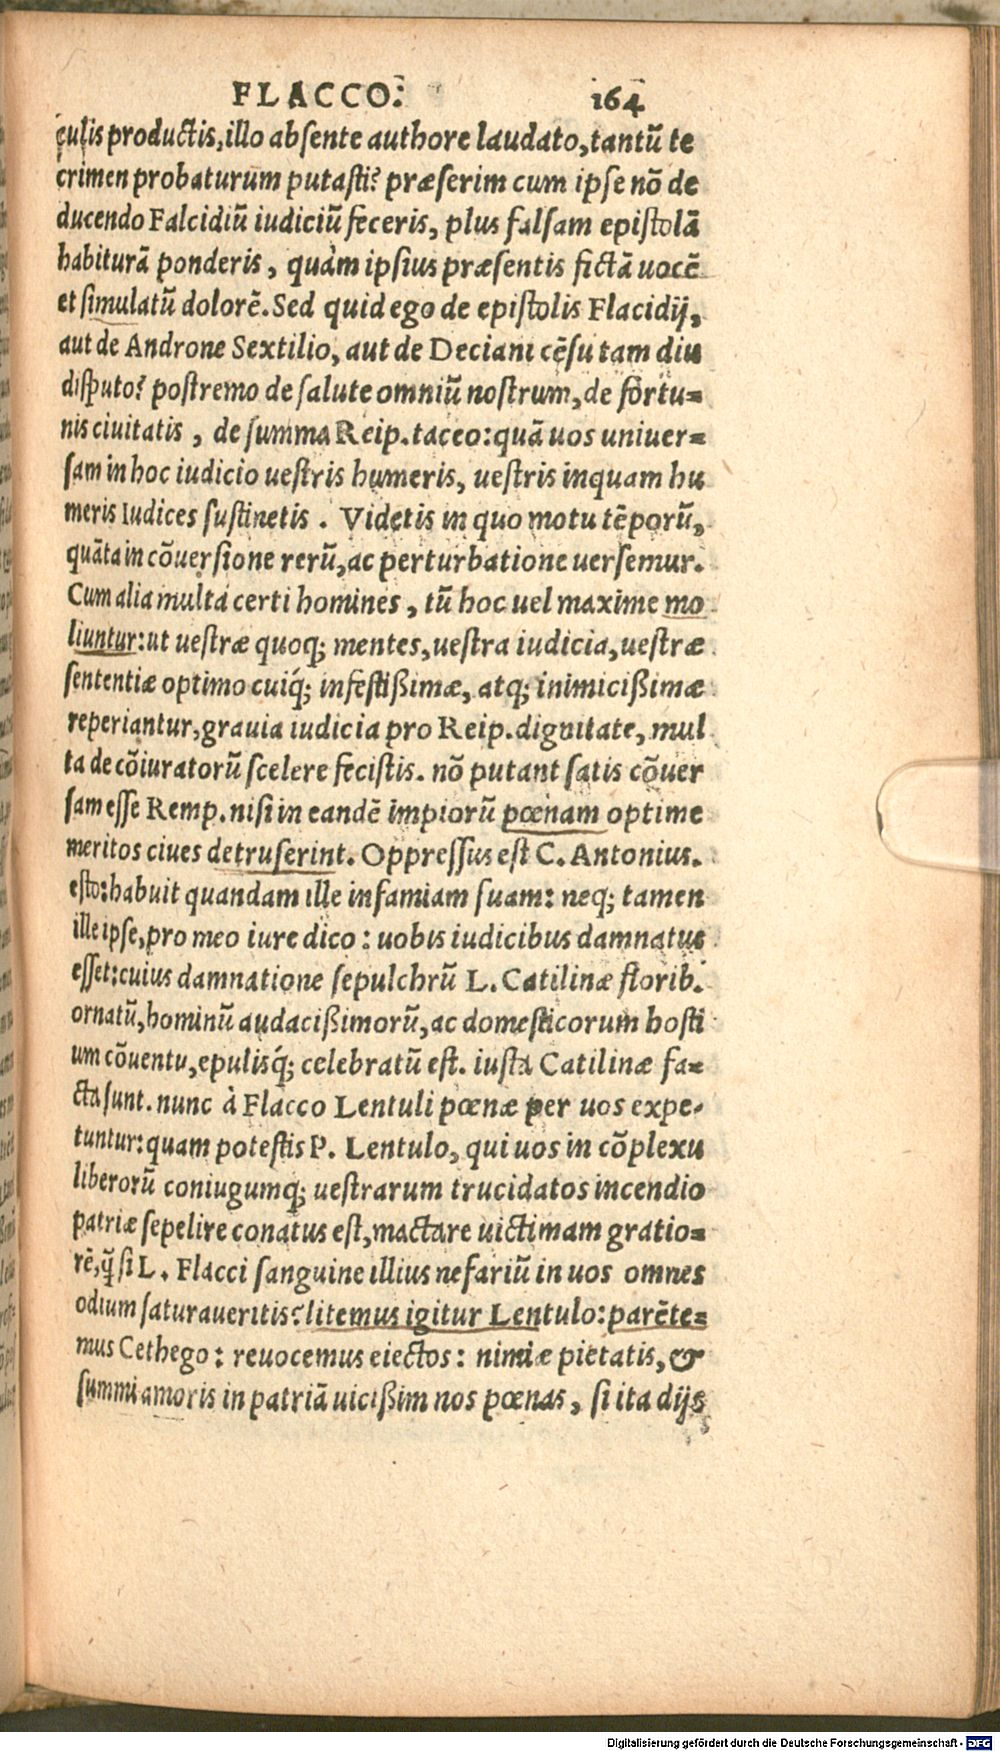 FLACCO. 164
culis productis, illo absente authore laudato, tantũ te
crimen probaturum putasti? præserim cum ipse nõ de
ducendo Falcidiũ iudiciũ feceris, plus falsam epistolã
habiturã ponderis, quàm ipsius præsentis fictã uocẽ
et simulatũ dolorẽ. Sed quid ego de epistolis Flacidij,
aut de Androne Sextilio, aut de Deciani cẽsu tam diu
disputo? postremo de salute omniũ nostrum, de fortu=
nis ciuitatis, de summa Reip. taceo: quã uos uniuer=
sam in hoc iudicio uestris humeris, uestris inquam hu
meris Iudices sustinetis. Videtis in quo motu tẽporũ,
quãta in cõuersione rerũ, ac perturbatione uersemur.
Cum alia multa certi homines, tũ hoc uel maxime mo
liuntur: ut uestræ quoq; mentes, uestra iudicia, uestræ
sententiæ optimo cuiq́; infestißimæ, atq; inimicißimæ
reperiantur, grauia iudicia pro Reip. dignitate, mul
ta de cõiuratorũ scelere fecistis. nõ putant satis cõuer
sam esse Remp. nisi in eandẽ impiorũ pœnam optime
meritos ciues detruserint. Oppressus est C. Antonius.
esto: habuit quandam ille infamiam suam: neq; tamen
ille ipse, pro meo iure dico: uobis iudicibus damnatus
esset: cuius damnatione sepulchrũ L. Catilinæ florib.
ornatũ, hominũ audacißimorũ, ac domesticorum hosti
um cõuentu, epulisq́; celebratũ est. iusta Catilinæ fa=
cta sunt. nunc à Flacco Lentuli pœnæ per uos expe=
tuntur: quam potestis P. Lentulo, qui uos in cõplexu
liberorũ coniugumq; uestrarum trucidatos incendio
patriæ sepelire conatus est, mactare uictimam gratio=
rẽ, q̃ si L. Flacci sanguine illius nefariũ in uos omnes
odium saturaueritis? litemus igitur Lentulo: parẽte=
mus Cethego: reuocemus eiectos: nimiæ pietatis, &
summi amoris in patriã uicißim nos pœnas, si ita dijs
Digitalisierung gefördert durch die Deutsche Forschungsgemeinschaft - DFG